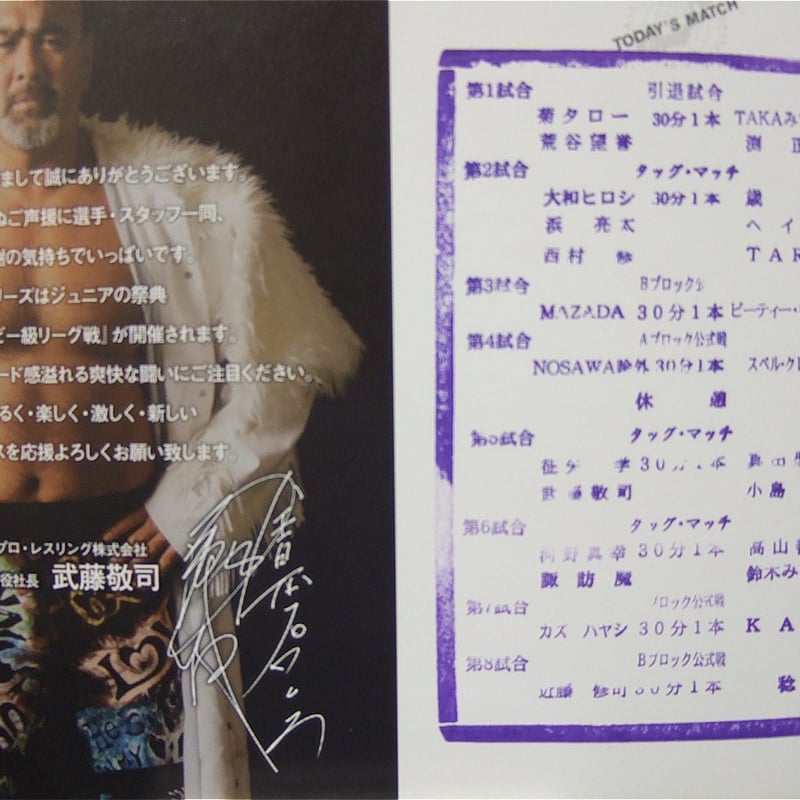 まして誠にありがとうございます。
ぬご声援に選手・スタッフ一同、
謝の気持ちでいっぱいです。
リーズはジュニアの祭典
ビー級リーグ戦』が開催されます。
ード感溢れる爽快な闘いにご注目ください。
るく・楽しく・激しく・新しい
スを応援よろしくお願い致します。
プロ・レスリング株式会社
役社長 武藤敬司
TODAY'S MATCH
第1試合 引退試合
菊タロー 30分1本 TAKAみ
荒谷望誉 渕 正
第2試合 タッグ・マッチ
大和ヒロシ 30分1本 歳
浜 亮太 ヘイ
西村 修 TAR
第3試合 Bブロック公
MAZADA 30分1本 ビーティー・
第4試合 Aブロック公式戦
NOSAWA論外 30分1本 スペル・クレ
休憩
第5試合 タッグ・マッチ
征矢 学 30分1本 真田聖
武藤敬司 小島
第6試合 タッグ・マッチ
河野真幸 30分1本 高山善
諏訪魔 鈴木み
第7試合 ブロック公式戦
カズ ハヤシ 30分1本 KA
第8試合 Bブロック公式戦
近藤 修司 30分1本 稔